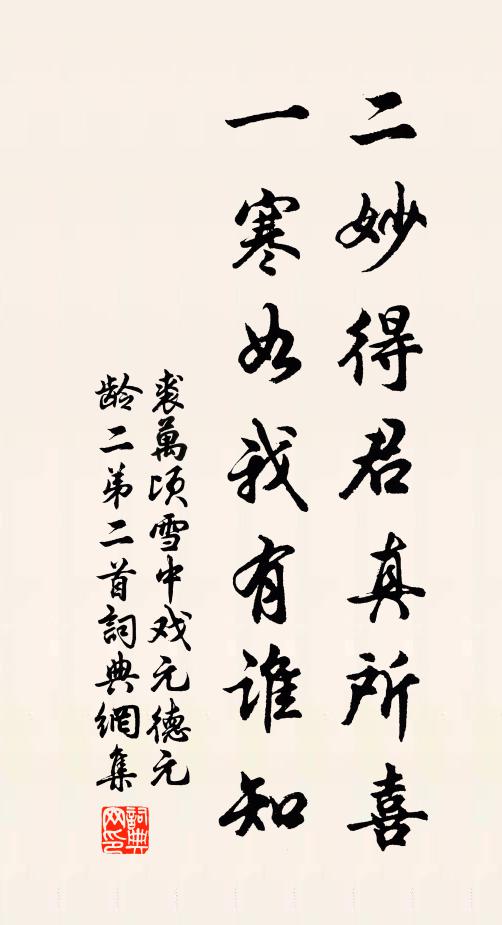 二妙得君真所喜
一寒如我有谁知
裘萬顷雪中戏元德元
龄二弟二首詞典網集
詞典网印